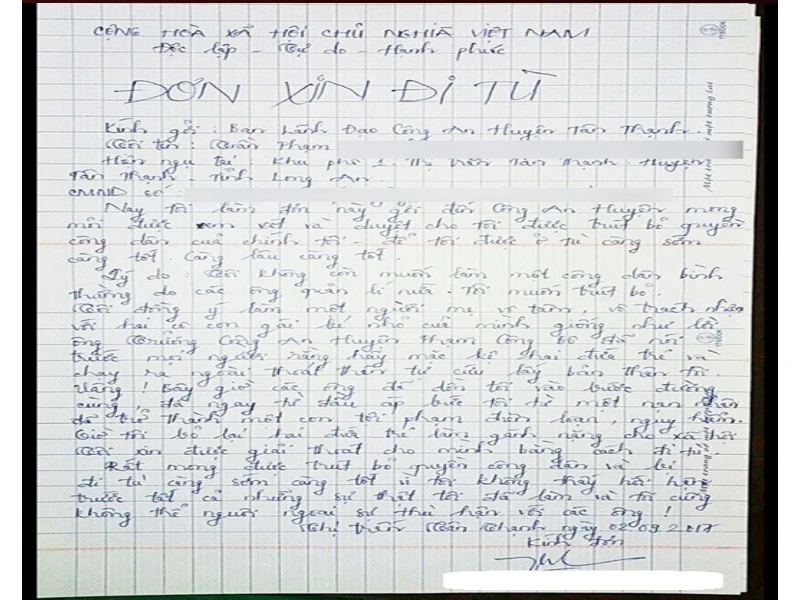 CỘNG HOÀ XÃ HỘI CHỦ NGHĨA VIỆT NAM
Độc lập - Tự do - Hạnh phúc
ĐƠN XIN ĐI TÙ
Kính gửi: Ban Lãnh Đạo Công An Huyện Tân Thạnh.
Tôi tên: Trần Phạm
Hiện ngụ tại: Khu phố 1. Thị trấn Tân Thạnh. Huyện
Tân Thạnh. Tỉnh Long An.
CMND số:
Nay tôi làm đơn này gởi đến Công An Huyện mong
mỏi được xem xét và duyệt cho tôi được trút bỏ quyền
công dân của chính tôi - để tôi được ở tù càng sớm
càng tốt. Càng lâu càng tốt.
Lý do: Tôi không còn muốn làm một công dân bình
thường do các ông quản lí nữa. Tôi muốn trút bỏ.
Tôi đồng ý làm một người mẹ vô tâm, vô trách nhận
với hai cô con gái bé nhỏ của mình giống như lời
ông Trưởng Công An Huyện Phạm Công Bô đã nói
trước mọi người rằng hãy mặc kệ hai đứa trẻ và
chạy ra ngoài thoát thân tự cứu lấy bản thân tôi.
Vâng! Bây giờ các ông đã dồn tôi vào bước đường
cùng, đã ngay từ đầu áp bức tôi từ một nạn nhân
đã trở thành một con tội phạm điên loạn, nguy hiểm.
Giờ tôi bỏ lại hai đứa trẻ làm gánh nặng cho xã hội
Tôi xin được giải thoát cho mình bằng cách đi tù.
Rất mong được trút bỏ quyền công dân và bị
đi tù càng sớm càng tốt vì tôi không thấy hối hận
trước tất cả những sự thật tôi đã làm và tôi cũng
không thể nguôi ngoai sự thù hận với các ông!
Thị trấn Tân Thạnh ngày 02.09.2017
Kính đơn